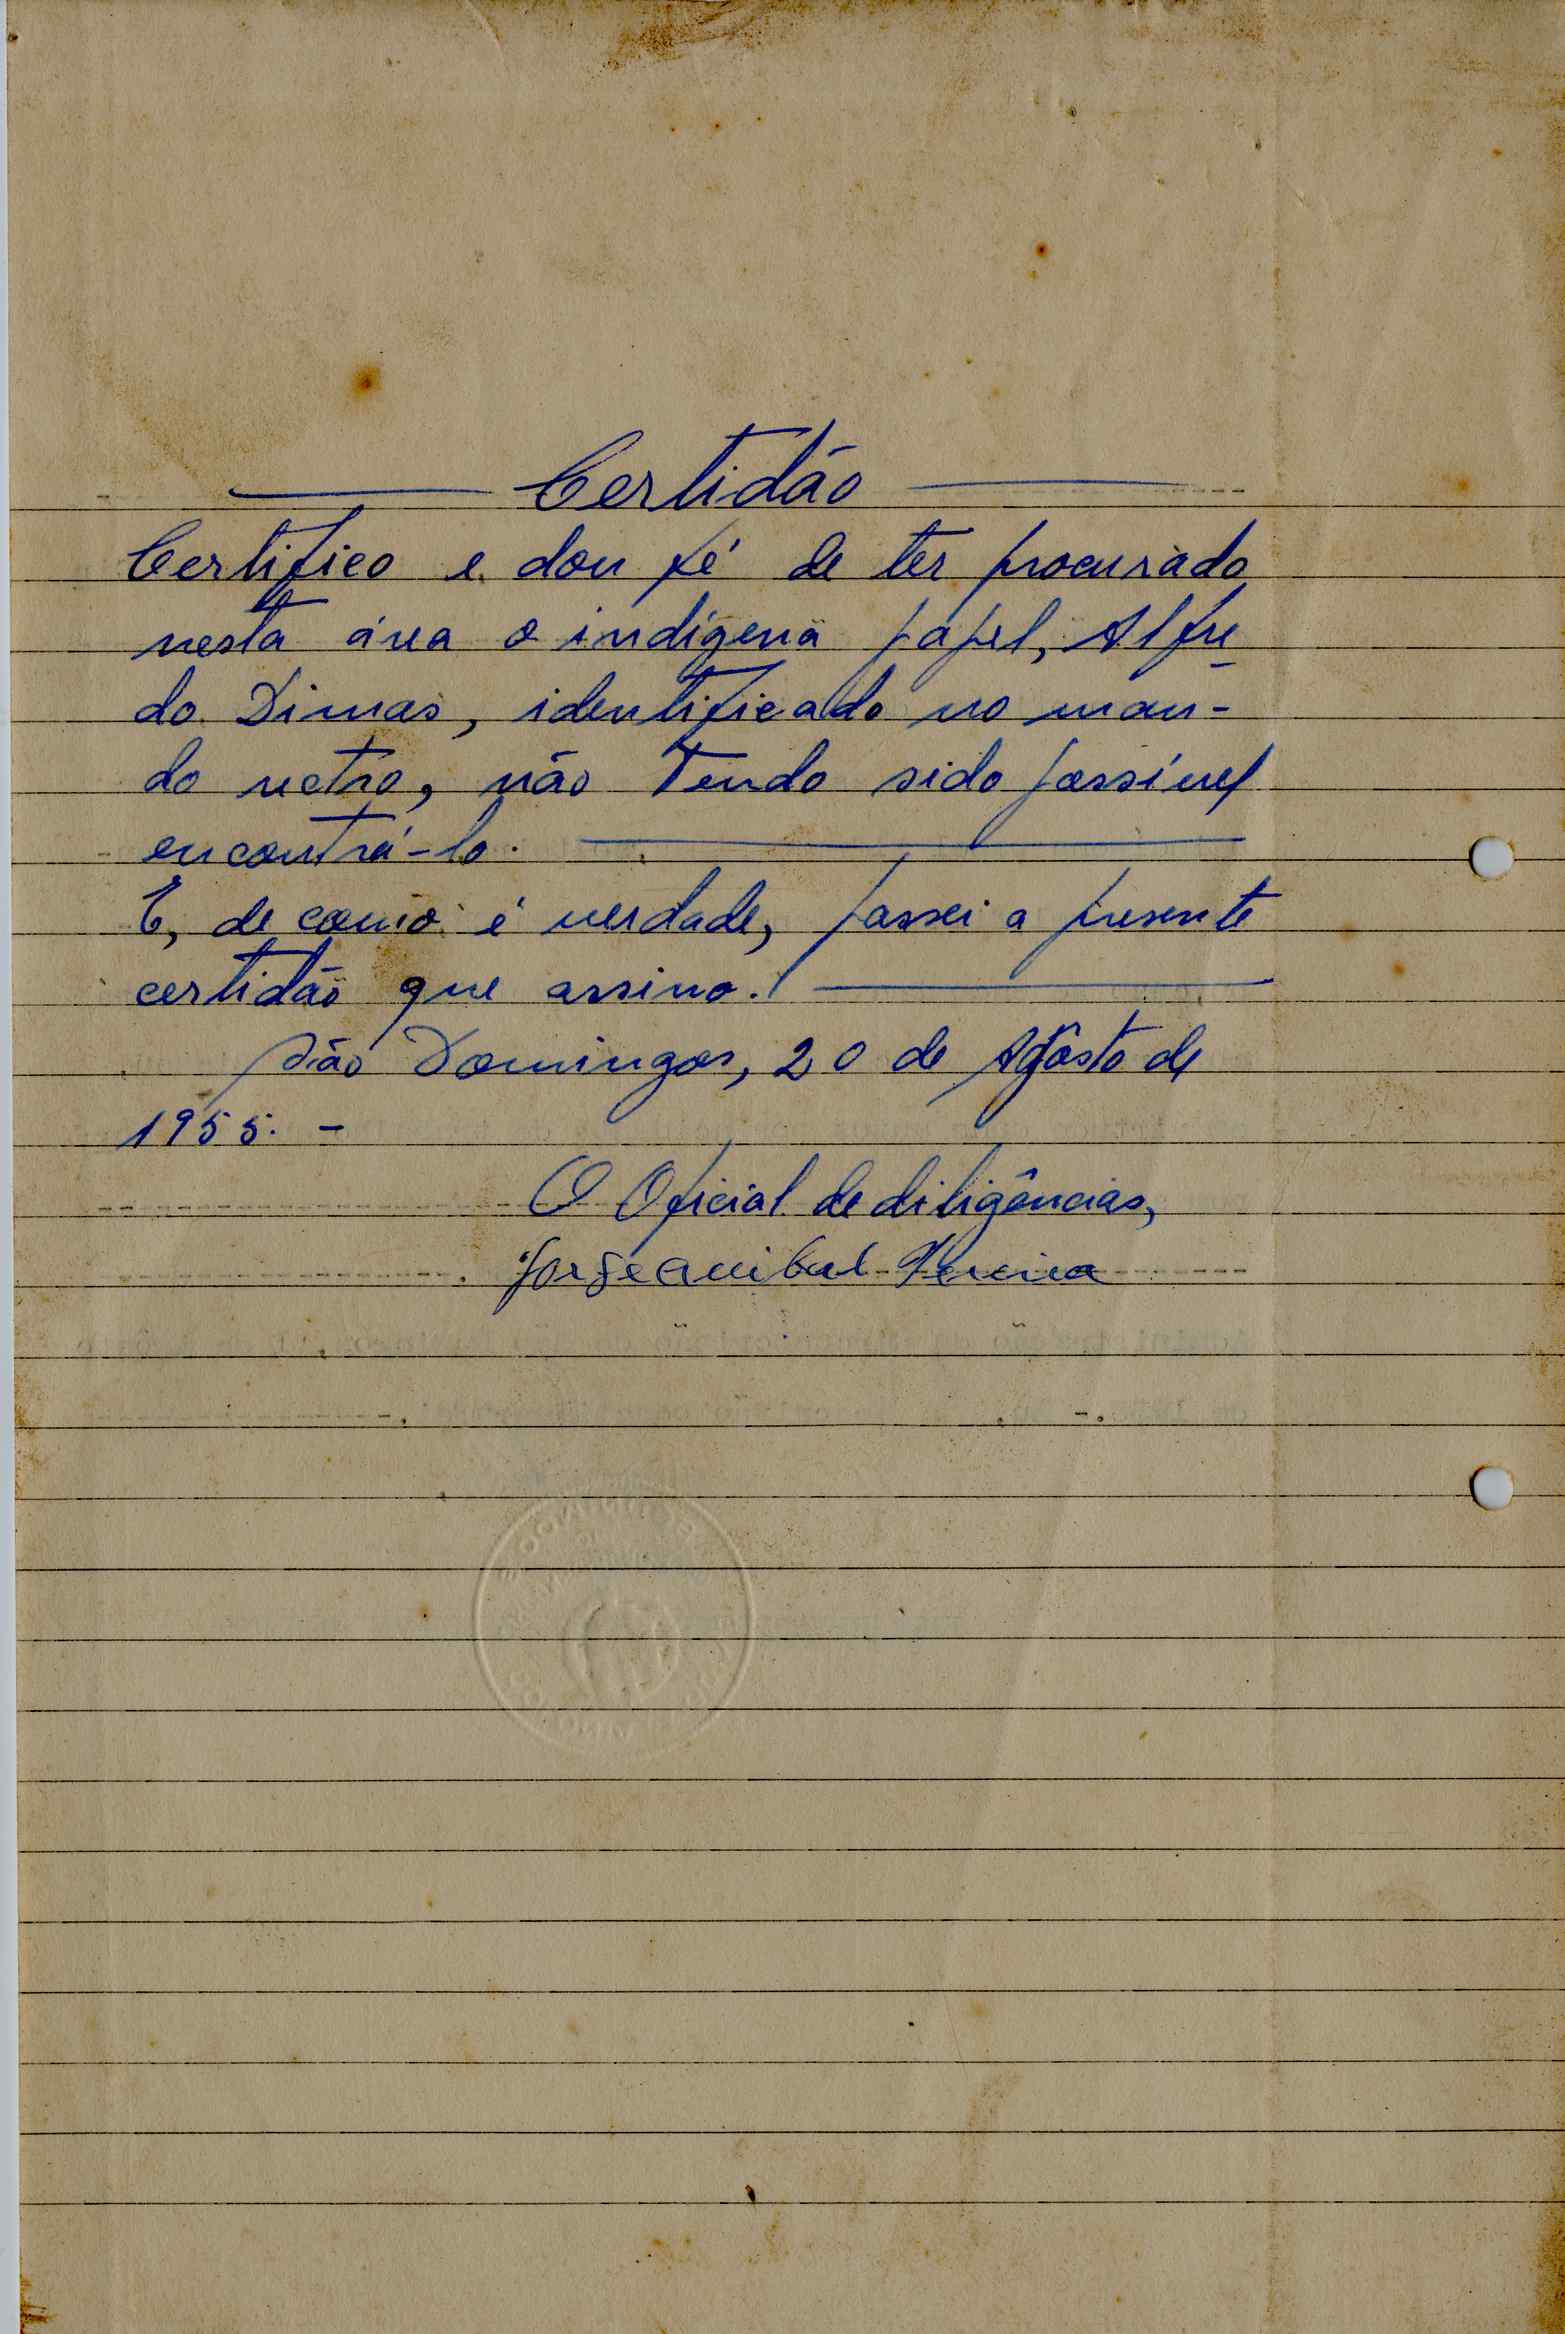 Certidão
Certifico e dou fé de ter procurado
nesta área o indígena papel, Alfre
do Dimas, identificado no man-
do retro, não tendo sido possível
encontrá-lo.
E, de como é verdade, passei a presente
certidão que assino.
São Domingos, 20 de Agôsto de
1955. -
O Oficial de diligências,
Jorge Anibal Pereira